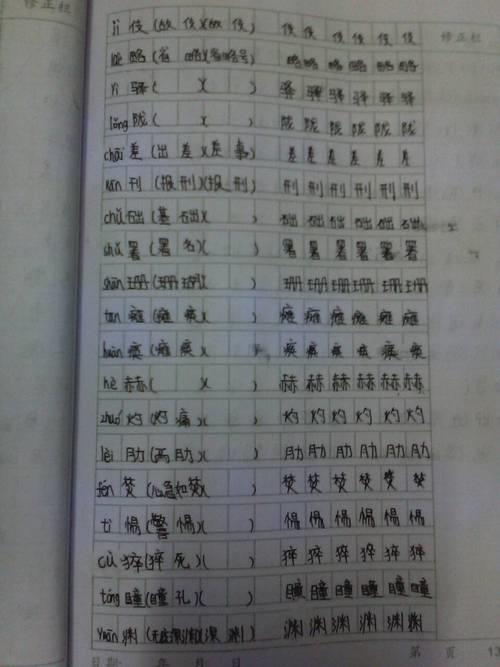 修正栏
修正栏
jì 伎 (故 伎)(故 伎) 伎 伎 伎 伎 伎 伎
lüè 略 (省 略)(省略号) 略 略 略 略 略 略
yì 驿 ( )( ) 驿 驿 驿 驿 驿 驿
lǒng 陇 ( )( ) 陇 陇 陇 陇 陇 陇
chāi 差 (出 差)(差 事) 差 差 差 差 差 差
kān 刊 (报 刊)(报 刊) 刊 刊 刊 刊 刊 刊
chǔ 础 (基 础)( ) 础 础 础 础 础 础
shǔ 署 (署 名)( ) 署 署 署 署 署 署
shān 珊 (珊 瑚)( ) 珊 珊 珊 珊 珊 珊
tān 瘫 (瘫 痪)( ) 瘫 瘫 瘫 瘫 瘫 瘫
huàn 痪 (瘫 痪)( ) 痪 痪 痪 痪 痪 痪
hè 赫 ( )( ) 赫 赫 赫 赫 赫 赫
zhuó 灼 (灼 痛)( ) 灼 灼 灼 灼 灼 灼
lèi 肋 (两 肋)( ) 肋 肋 肋 肋 肋 肋
fén 焚 (心急如焚)( ) 焚 焚 焚 焚 焚 焚
tì 惕 (警 惕)( ) 惕 惕 惕 惕 惕 惕
cù 猝 (猝 死)( ) 猝 猝 猝 猝 猝 猝
tóng 瞳 (瞳 孔)( ) 瞳 瞳 瞳 瞳 瞳 瞳
yuān 渊 (无底深渊)(深 渊) 渊 渊 渊 渊 渊 渊
日期 年 月 日 第 页